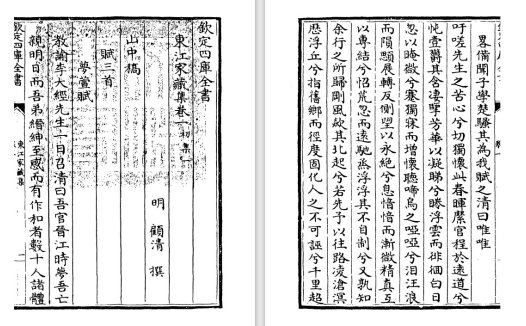 欽定四庫全書
東江家藏集卷一 初集一
明 顧清 撰
山中稿
賦三首
夢萱賦
教諭李大經先生一日召清曰吾官晉江時夢吾亡
親明日而吾弟縉紳至感而有作和者數十人諸體
欽定四庫全書 東江家藏集
畧備聞子學楚騷其為我賦之清曰唯唯
吁嗟先生之苦心兮切獨懷此春暉縻官程於遠道兮
怳壹爵其含悽搴芳華以凝睇兮睠浮雲而徘徊白日
忽以晻微兮蹇獨寐而增懷聽啼烏之啞啞兮泪汪浪
而隕顆展轉反側望以永絕兮息愔愔而漸微精真互
以專結兮怳荒忽而遠馳烝浮浮其不自制兮又孰知
余行之所歸剛風欻其北起兮若先予以往路凌滄溟
歴浮丘兮指舊鄉而徑度固化人之不可誣兮千里超